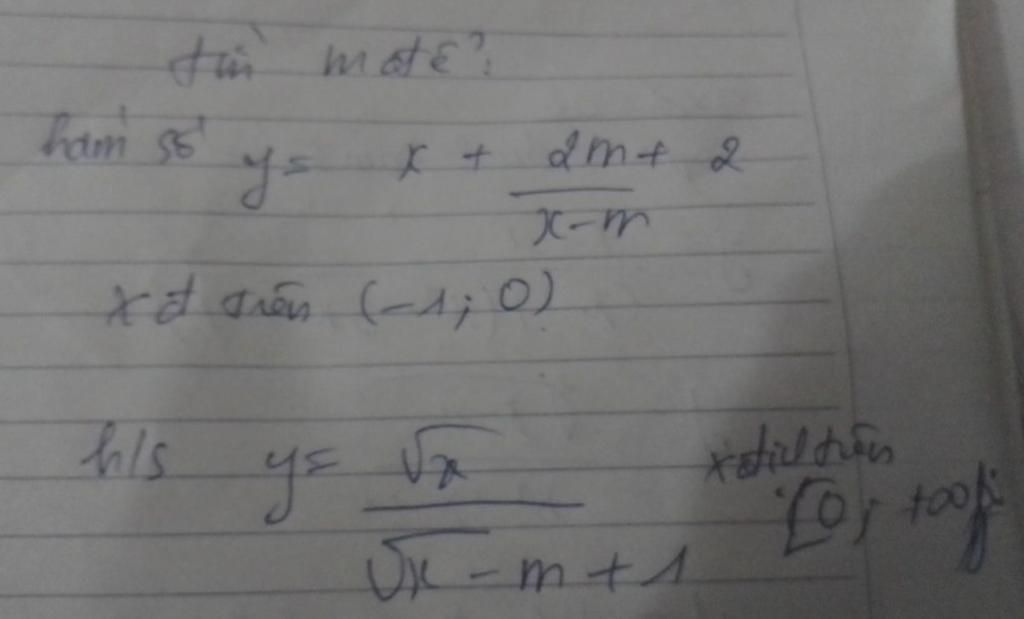 tìm m để?
hàm số y = x + 2m + 2
x - m
xđ trên (-1; 0)
h/s y = √x
xđịnh trên
√x - m + 1
[0; +∞)